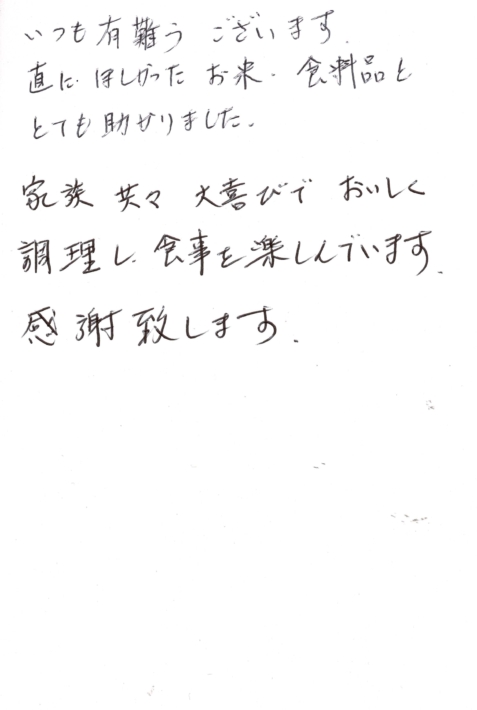 いつも有難う ございます.
直に ほしかった お米. 食料品と
とても助かりました.
家族 共々 大喜びで おいしく
調理し. 食事を楽しんでいます.
感謝致します.